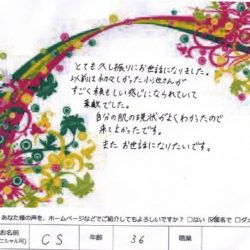 とても久し振りにお世話になりました。
以前は初々しかった小池さんが
すごく頼もしい感じになられていて
素敵でした。
自分の肌の現状がよくわかったので
来てよかったです。
また お世話になりたいです。
あなた様の声を、ホームページなどでご紹介してもよろしいですか？ □はい
お名前 CS 年齢 36 職業
ニシャル可)